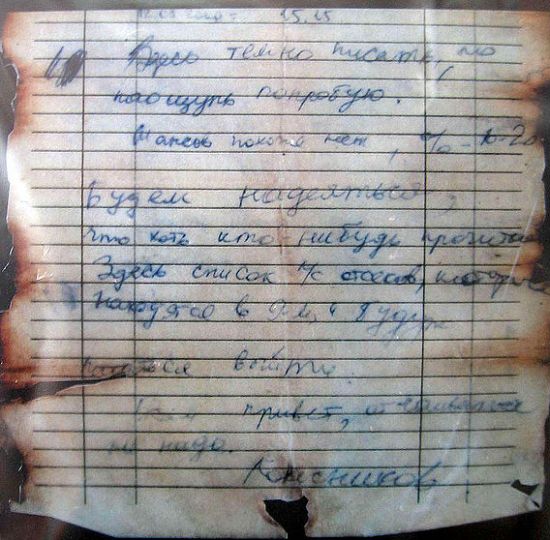 15.15
Здесь темно писать, но
наощупь попробую.
Шансов похоже нет, % - 10-20
Будем надеяться,
что хоть кто-нибудь прочитает
Здесь список л/с отсеков, которые
находятся в 9-м и будут
выйти.
привет, отчаиваться
не надо.
Колесников